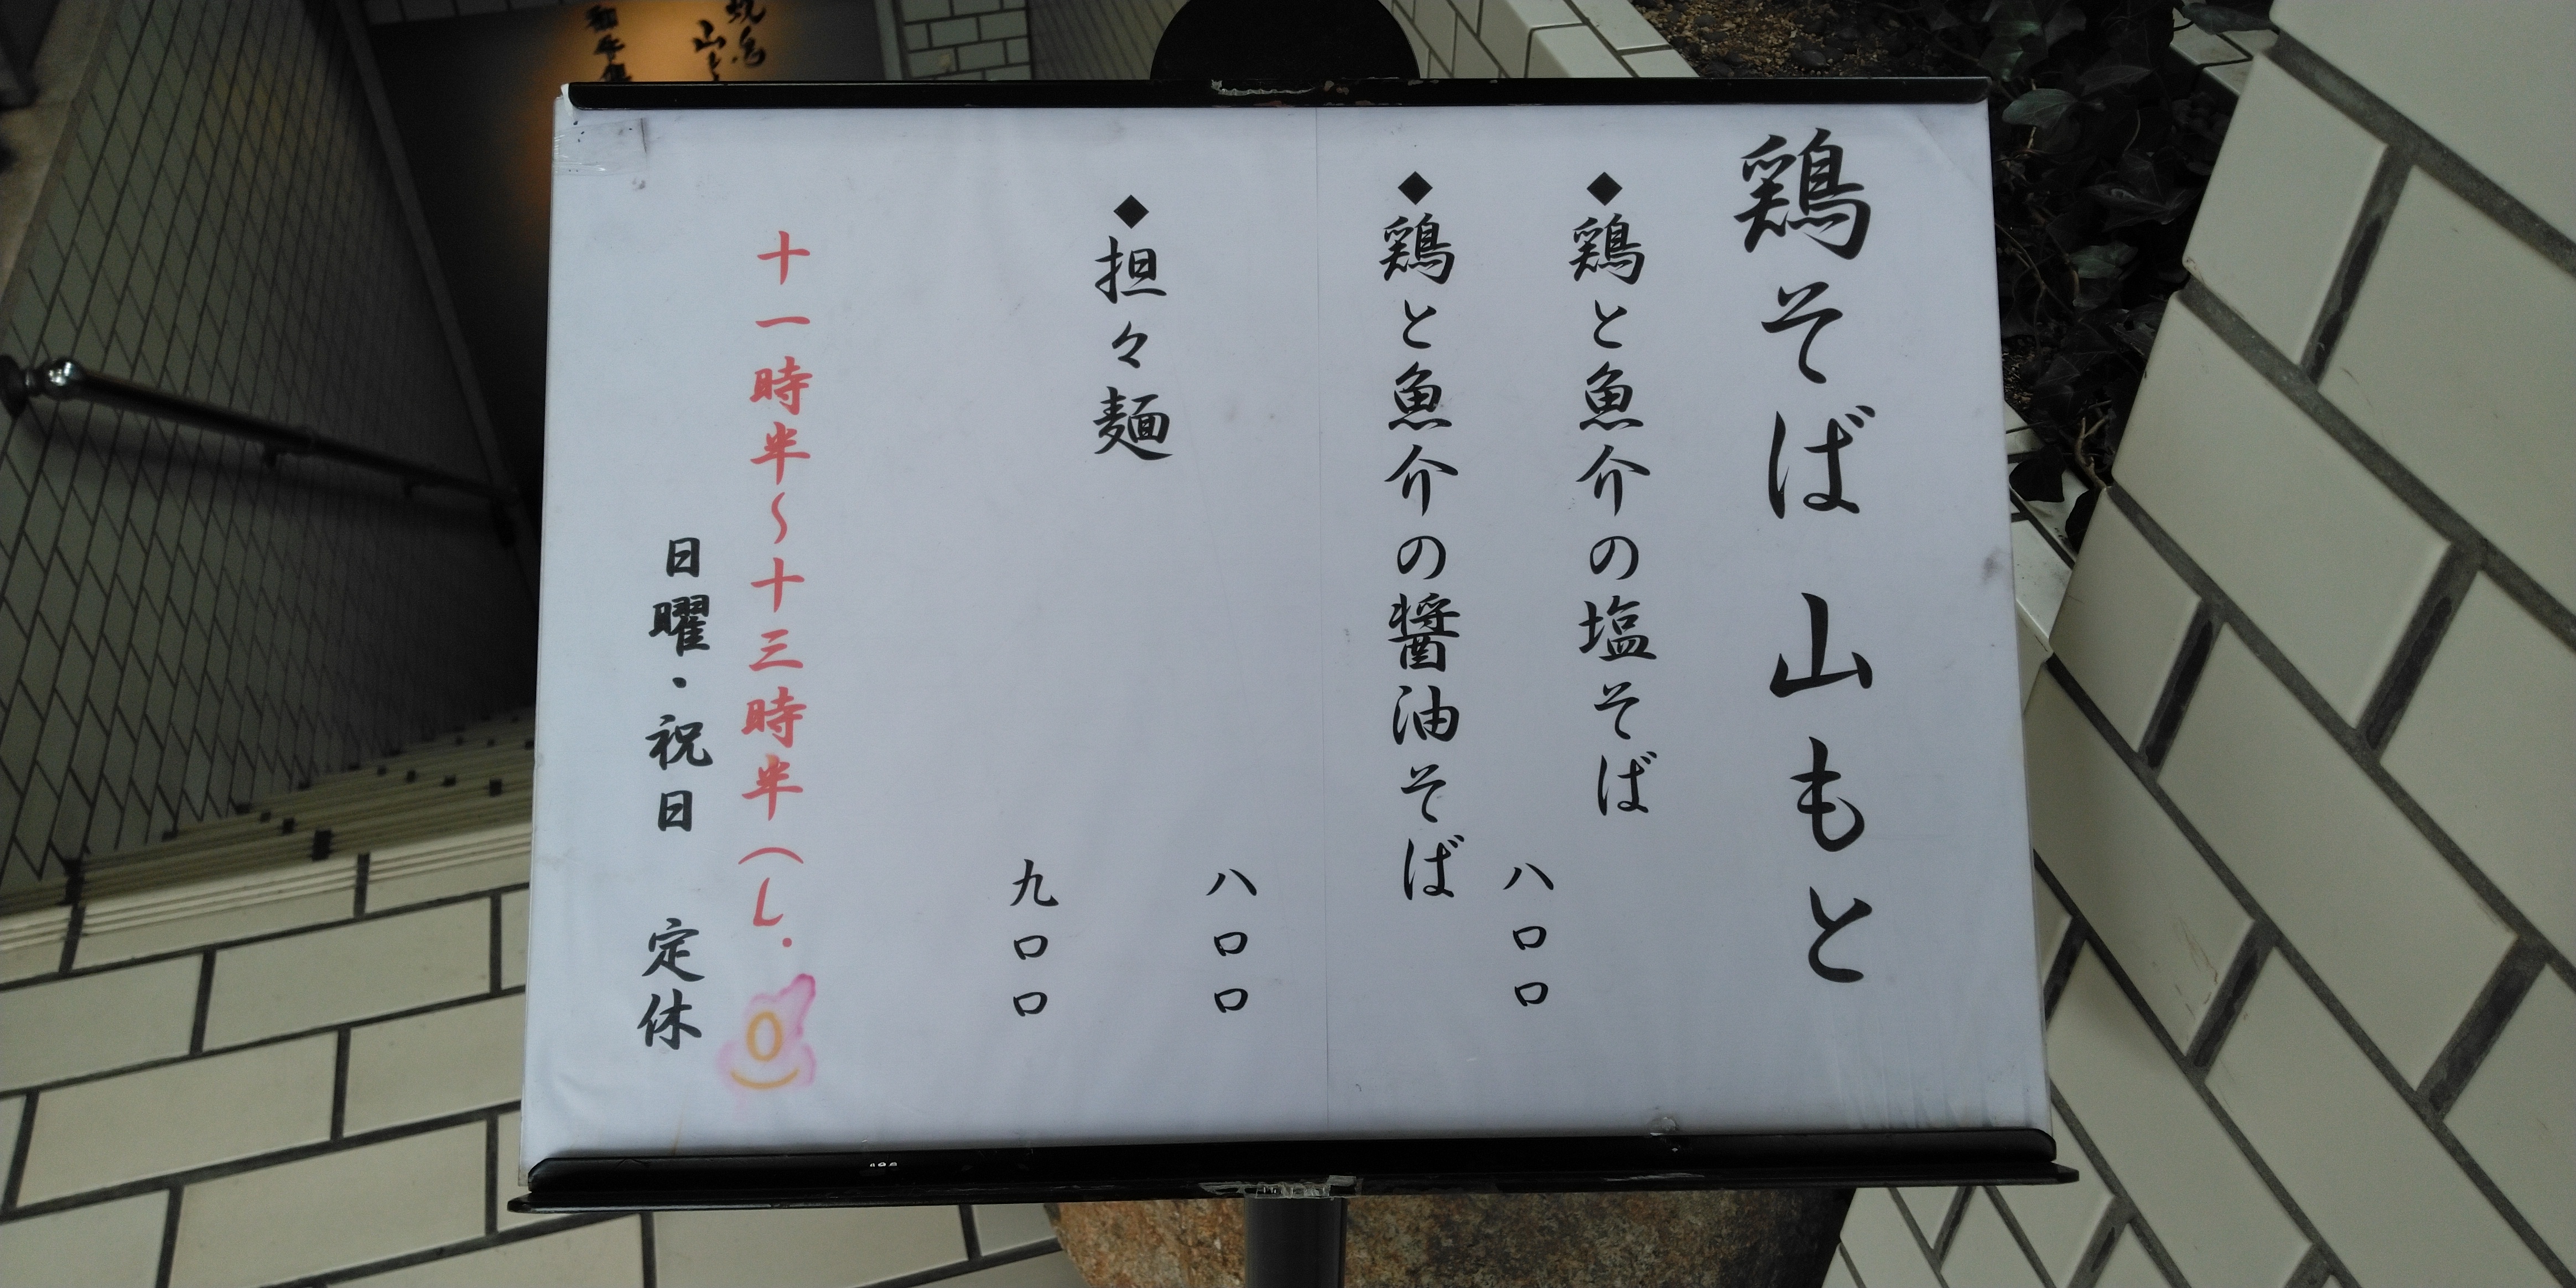 鶏そば 山もと
◆鶏と魚介の塩そば
八〇〇
◆鶏と魚介の醤油そば
八〇〇
◆担々麺
九〇〇
十一時半～十三時半（L.O
日曜・祝日 定休